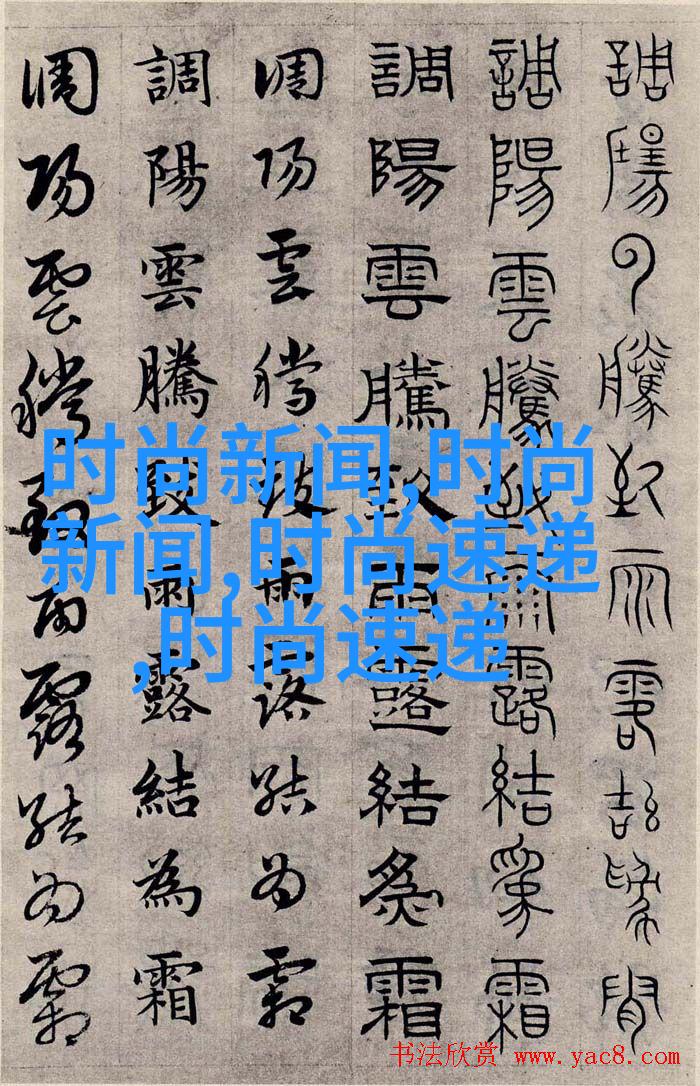 調陽云騰致雨露結為霜
調陽雲騰致雨露結為霜
調陽雲騰致雨露結為霜
調陽雲騰致雨露結為霜
調陽雲騰致雨露結為霜
調陽雲騰致雨露結為霜
时尚新闻,时尚
新闻,时尚速递
,时尚速递
书法欣赏 www.yac8.com